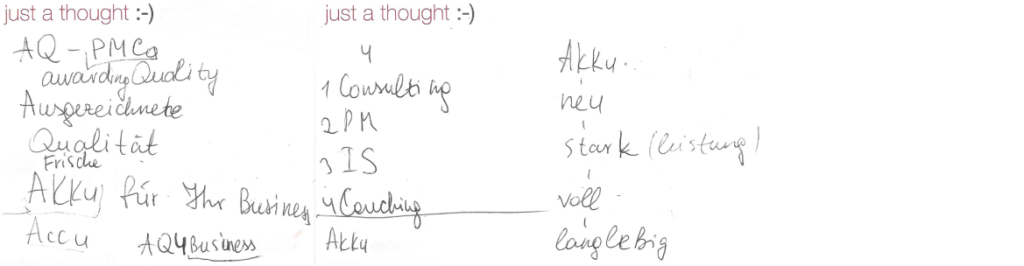 just a thought :-)
AQ - PMCo
awarding Quality
Ausgezeichnete
Qualität
Frische
AKKU für Ihr Business
Accu
AQ4Business
just a thought :-)
4
1 Consulting
2 PM
3 IS
4 Couching
Akku
Akku
neu
stark (leistung)
voll
langlebig